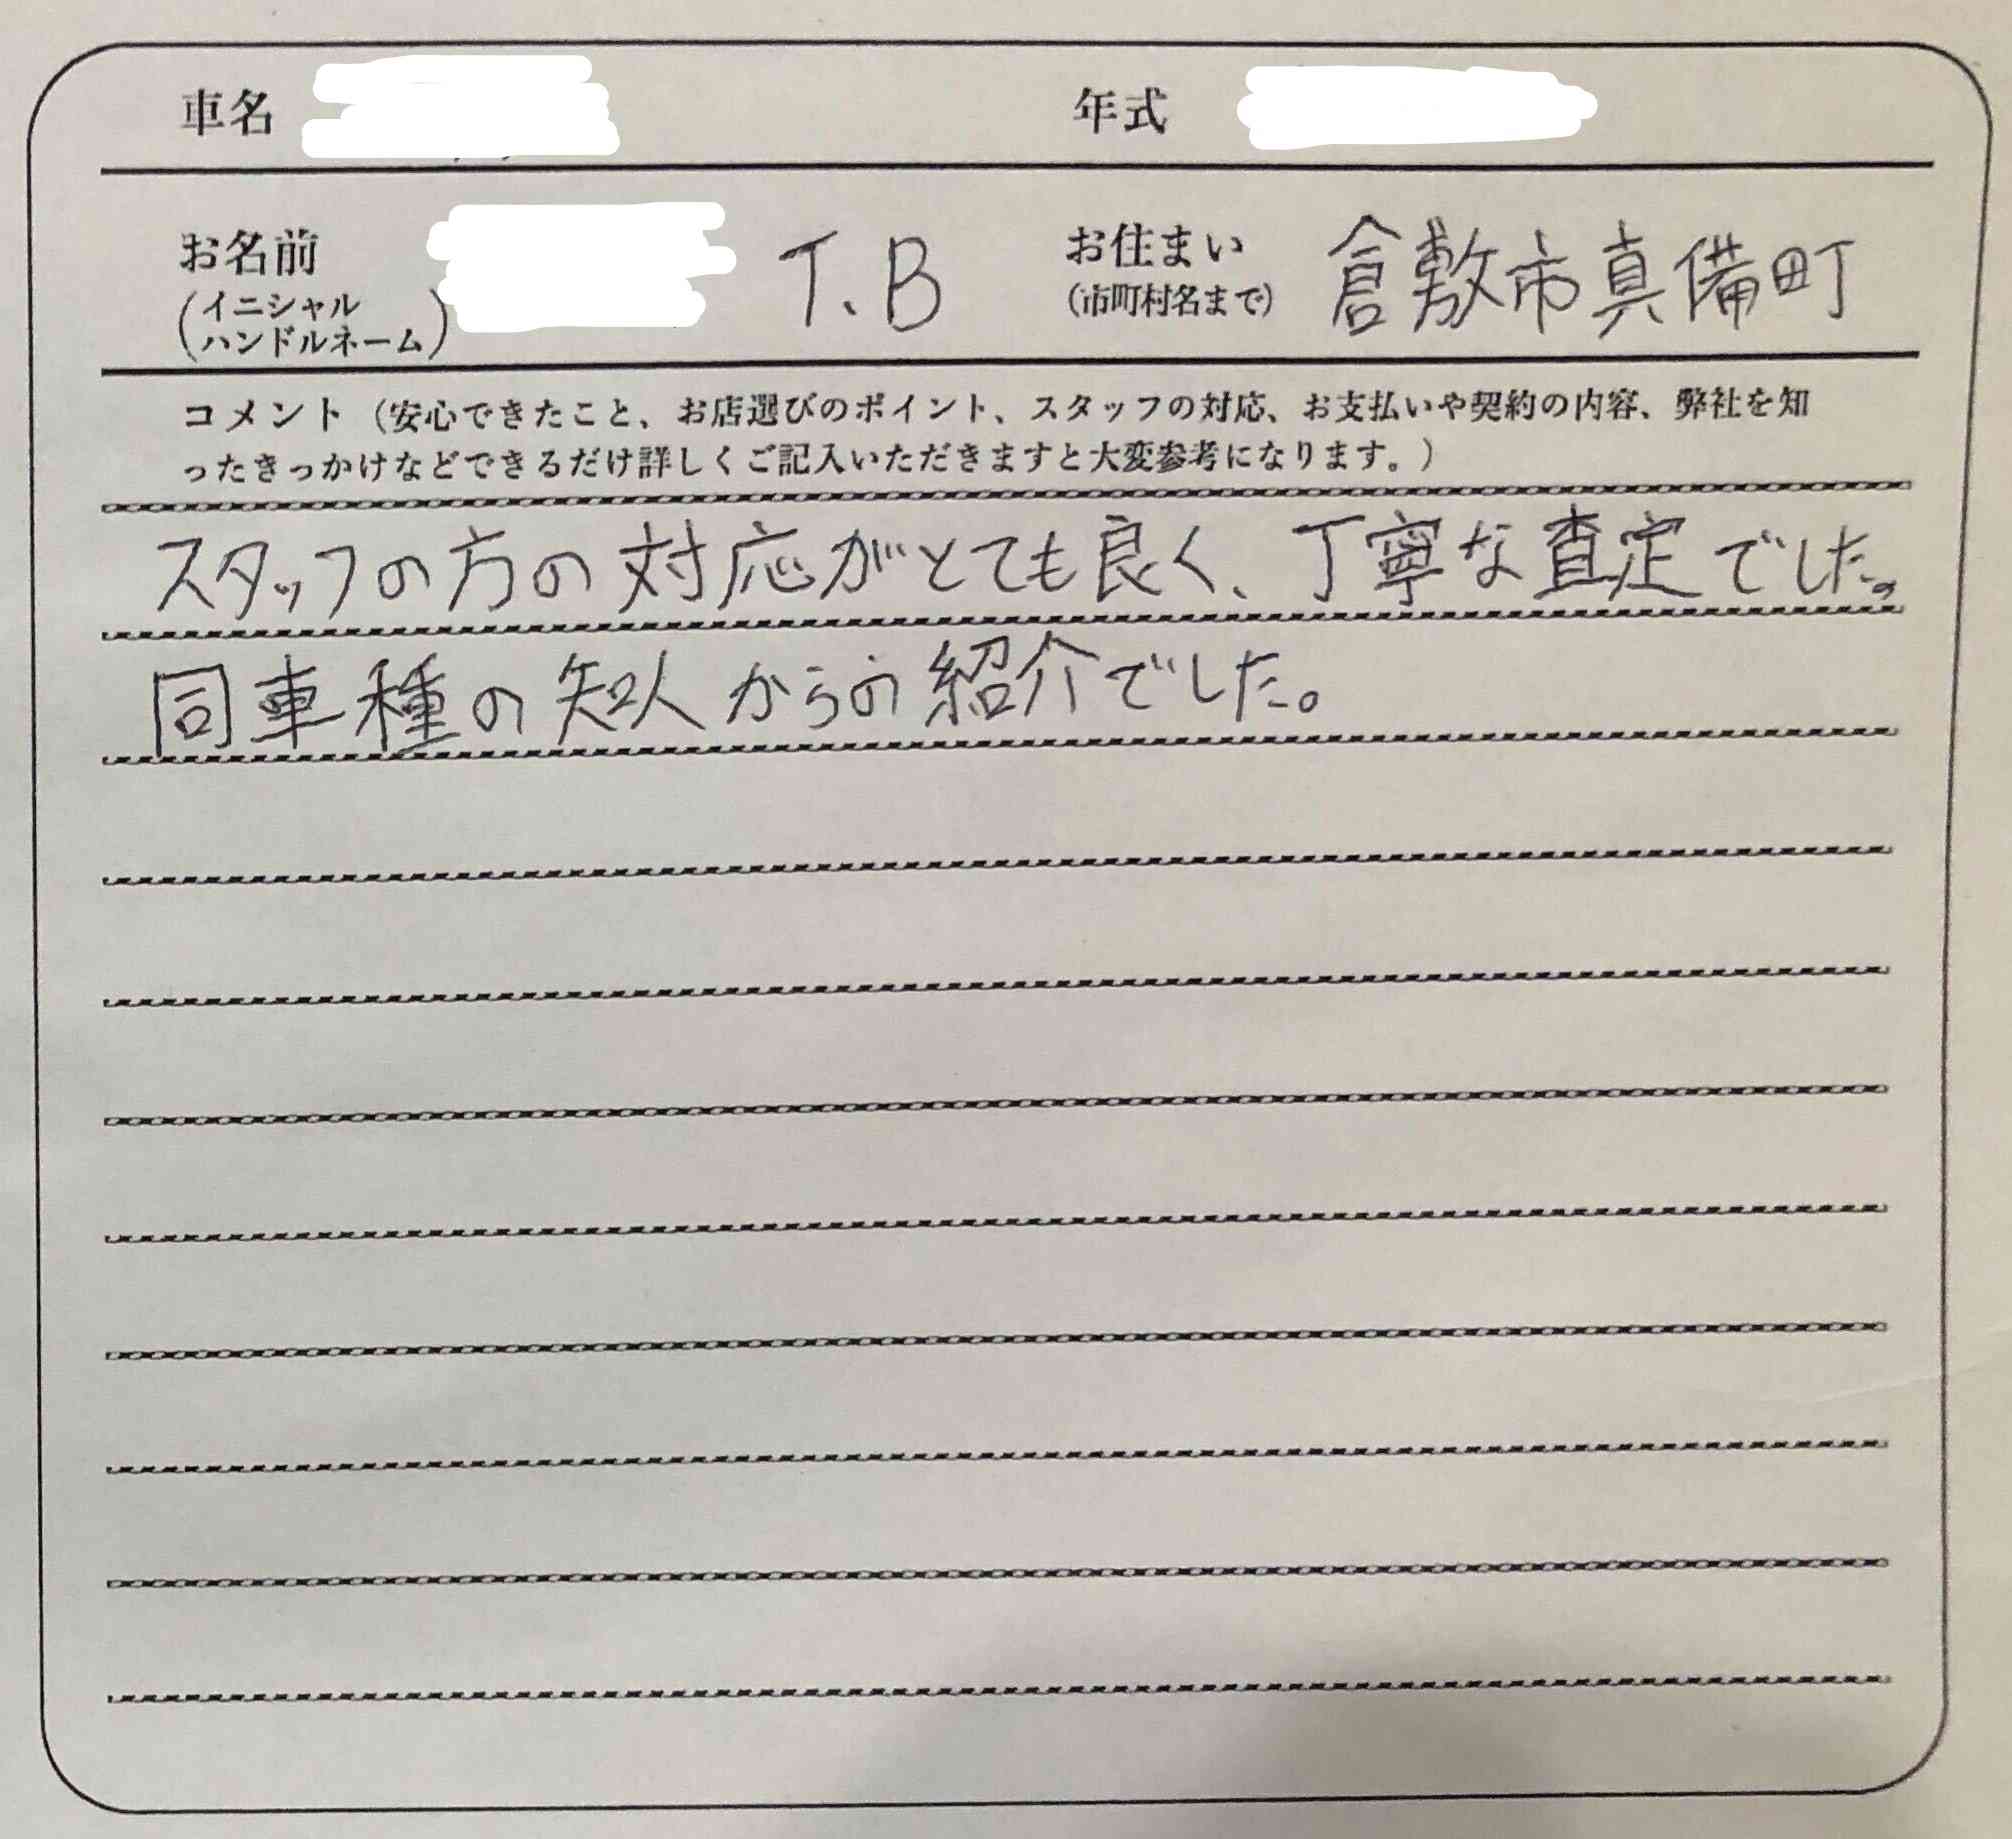 車名 年式
お名前 (イニシャル ハンドルネーム) T.B お住まい (市町村名まで) 倉敷市真備町
コメント（安心できたこと、お店選びのポイント、スタッフの対応、お支払いや契約の内容、弊社を知
ったきっかけなどできるだけ詳しくご記入いただきますと大変参考になります。）
スタッフの方の対応がとても良く、丁寧な査定でした。
同車種の知人からの紹介でした。